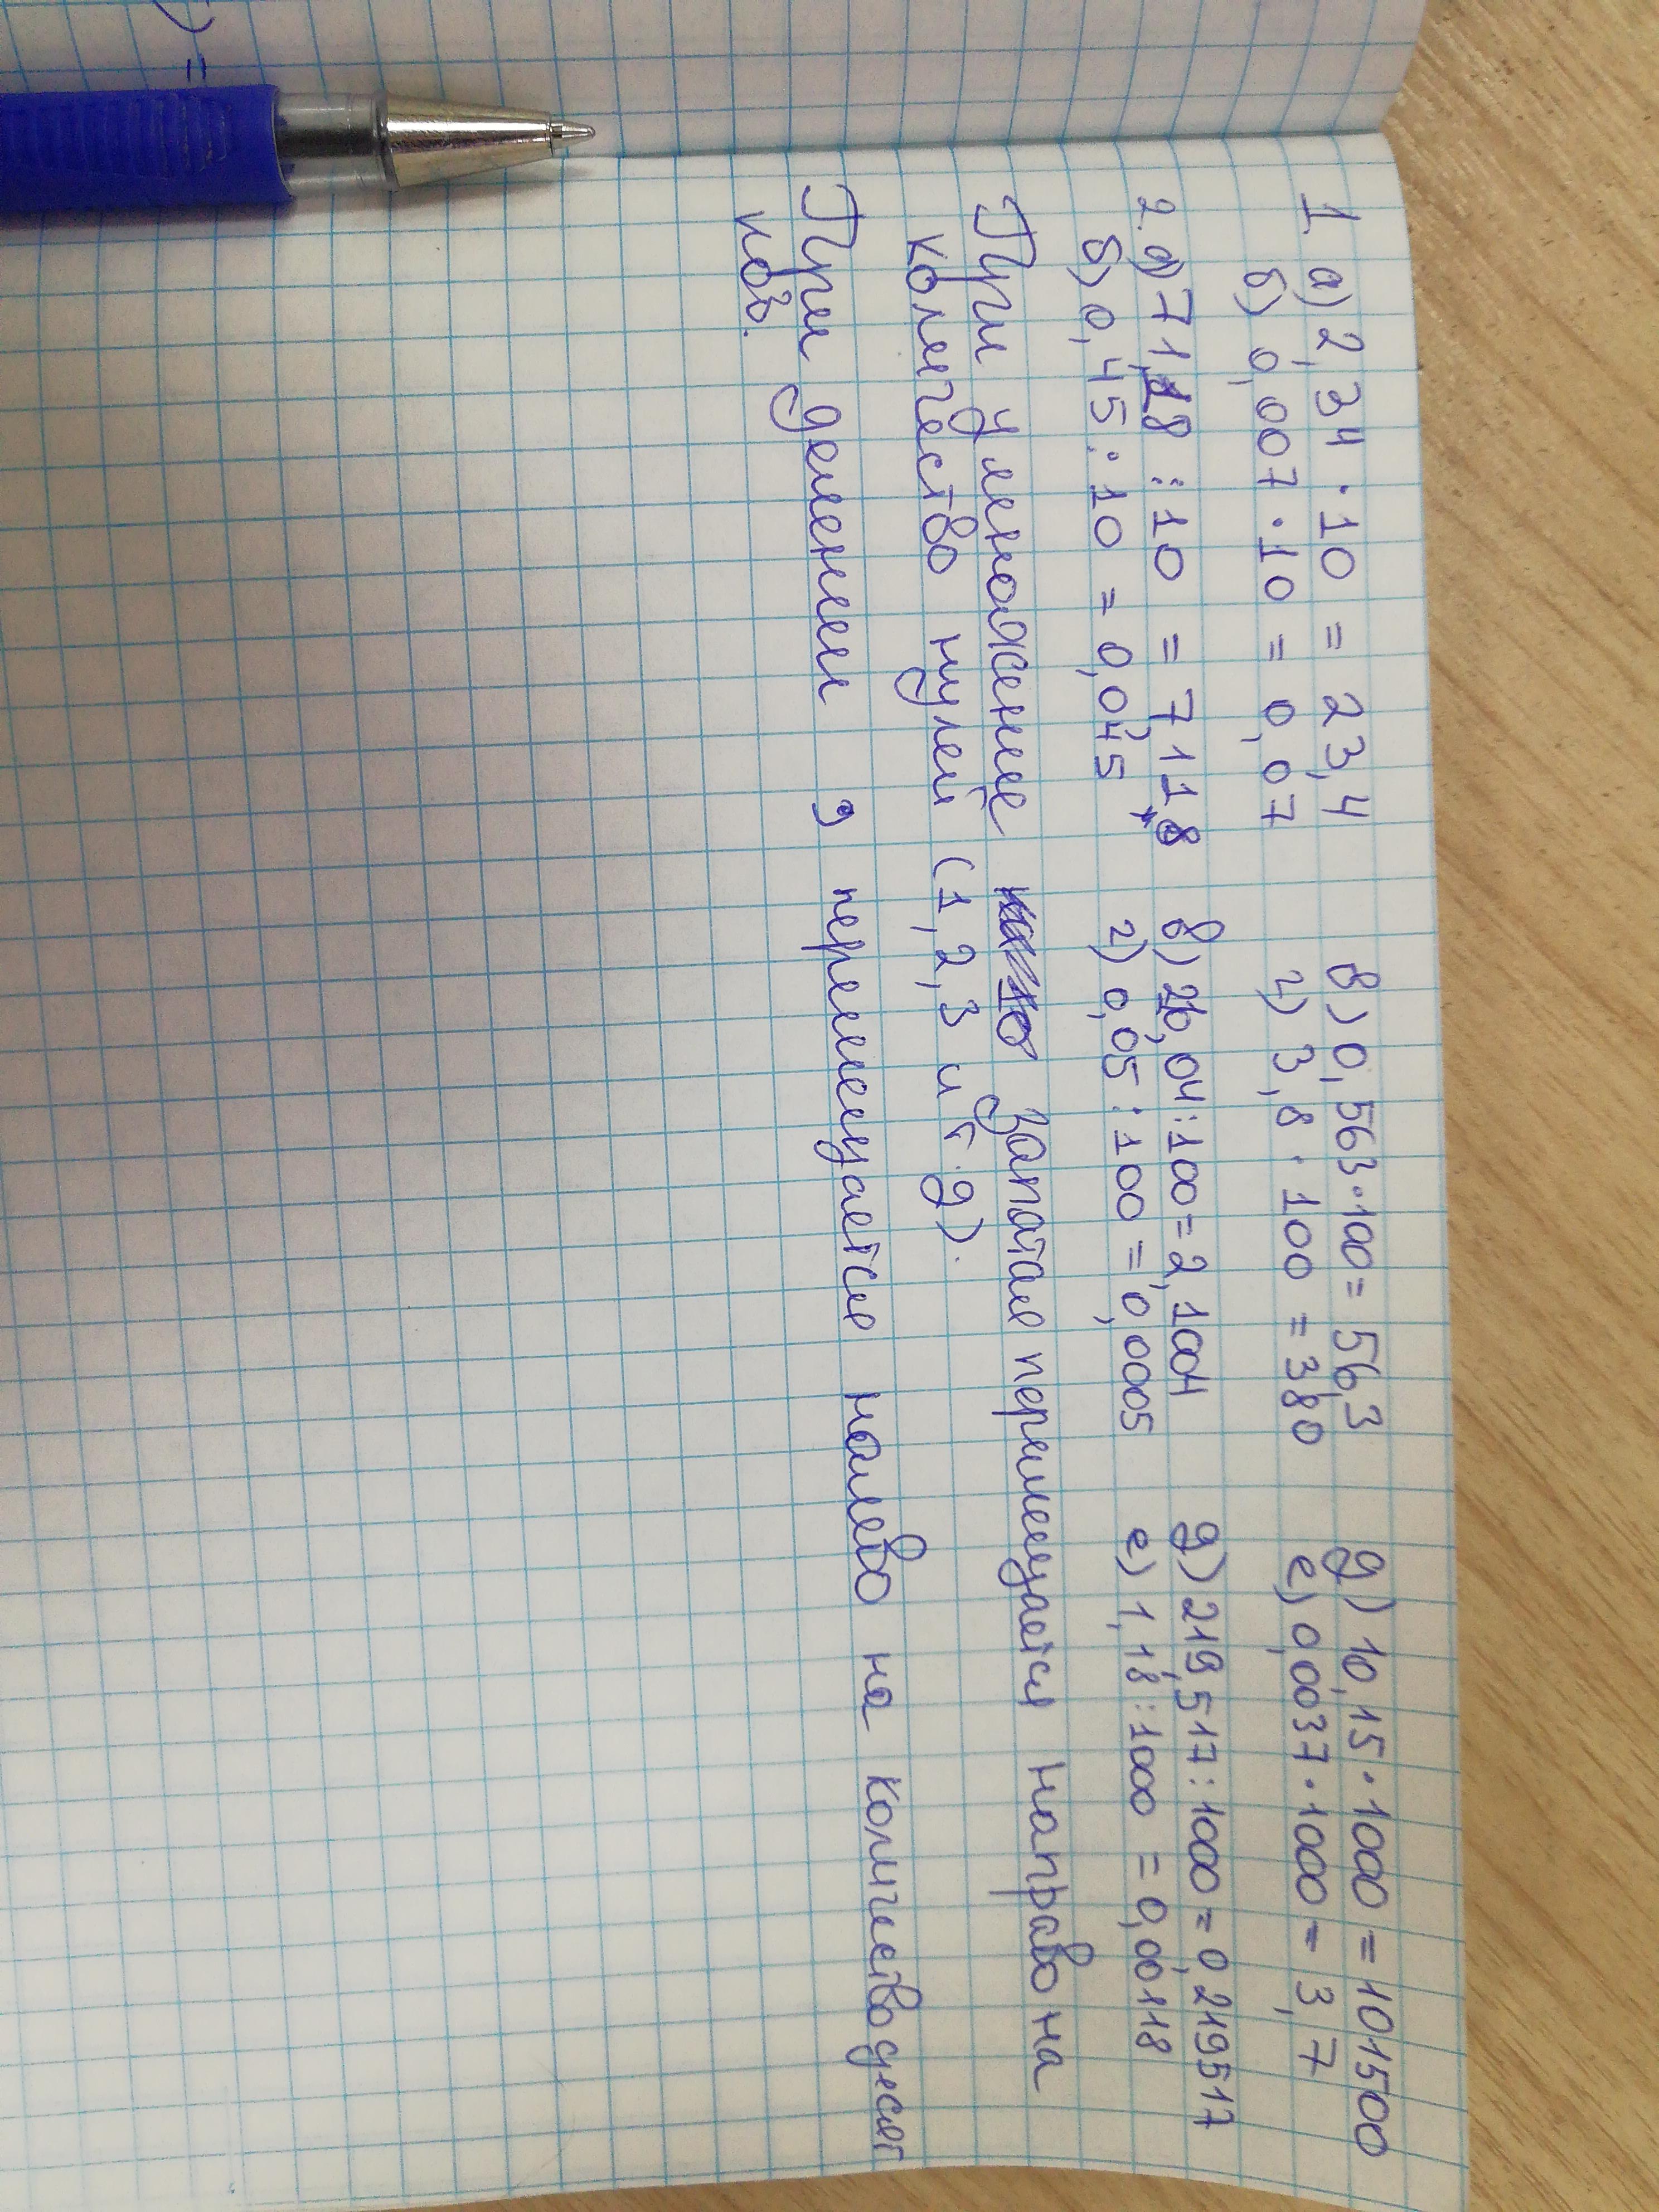 ) =
1. а) 2,34 · 10 = 23,4 в) 0,563 · 100 = 56,3 д) 10,15 · 1000 = 101500
б) 0,007 · 10 = 0,07 г) 3,8 · 100 = 380 е) 0,0037 · 1000 = 3,7
2. а) 71,18 : 10 = 7,118 в) 210,04 : 100 = 2,1004 д) 219,517 : 1000 = 0,219517
б) 0,45 : 10 = 0,045 г) 0,05 : 100 = 0,0005 е) 1,18 : 1000 = 0,00118
При умножение запатая перемещается направо на
количество нулей (1, 2, 3 и т. д).
При делении , перемещается налево на количество десят
ков.